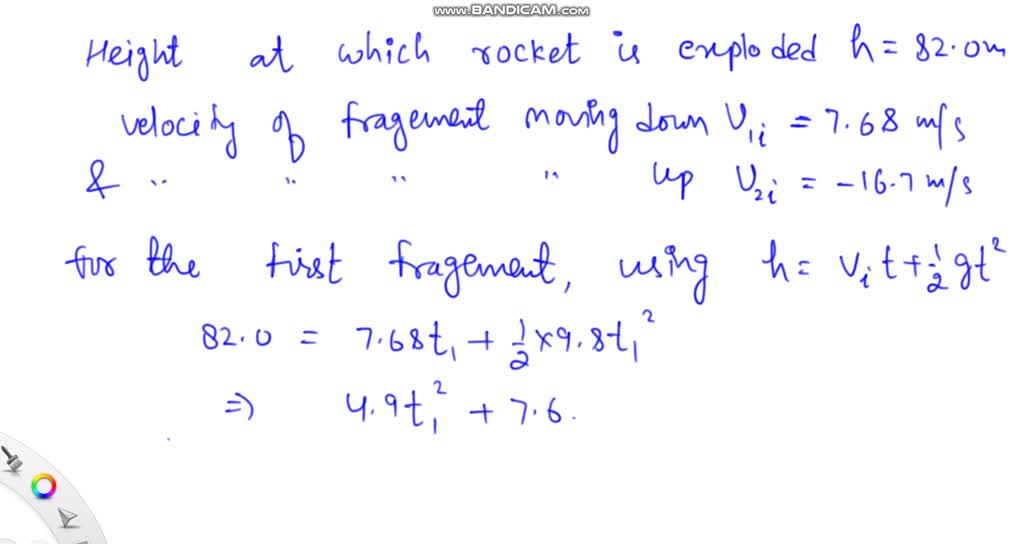 www.BANDICAM.com
Height at which rocket is exploded h = 82.0m
velocity of fragement moving down V₁ᵢ = 7.68 m/s
& " " " " up V₂ᵢ = -16.7 m/s
for the first fragement, using h = Vᵢt + ½gt²
82.0 = 7.68t₁ + ½×9.8t₁²
⇒ 4.9t₁² + 7.6.